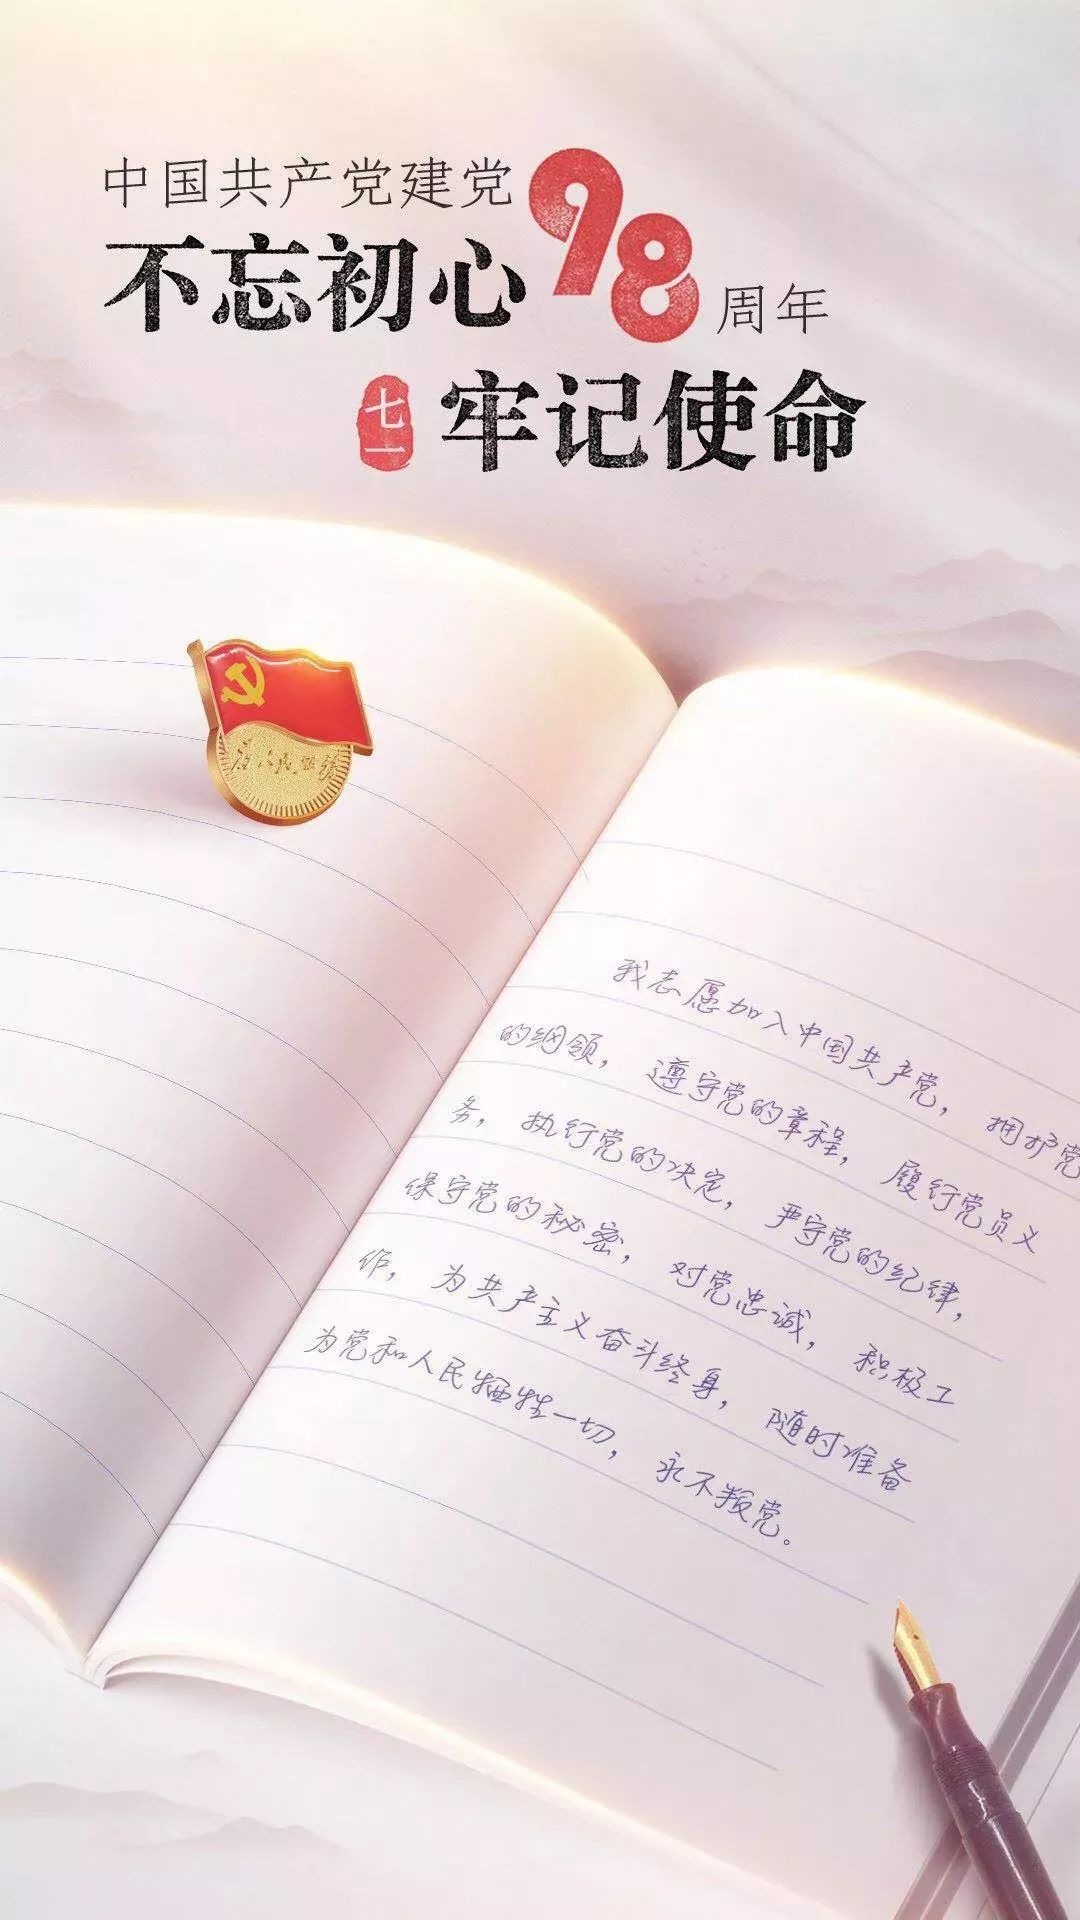 中国共产党建党98周年
不忘初心
七一
牢记使命
为人民服务
我志愿加入中国共产党，拥护党
的纲领，遵守党的章程，履行党员义
务，执行党的决定，严守党的纪律，
保守党的秘密，对党忠诚，积极工
作，为共产主义奋斗终身，随时准备
为党和人民牺牲一切，永不叛党。